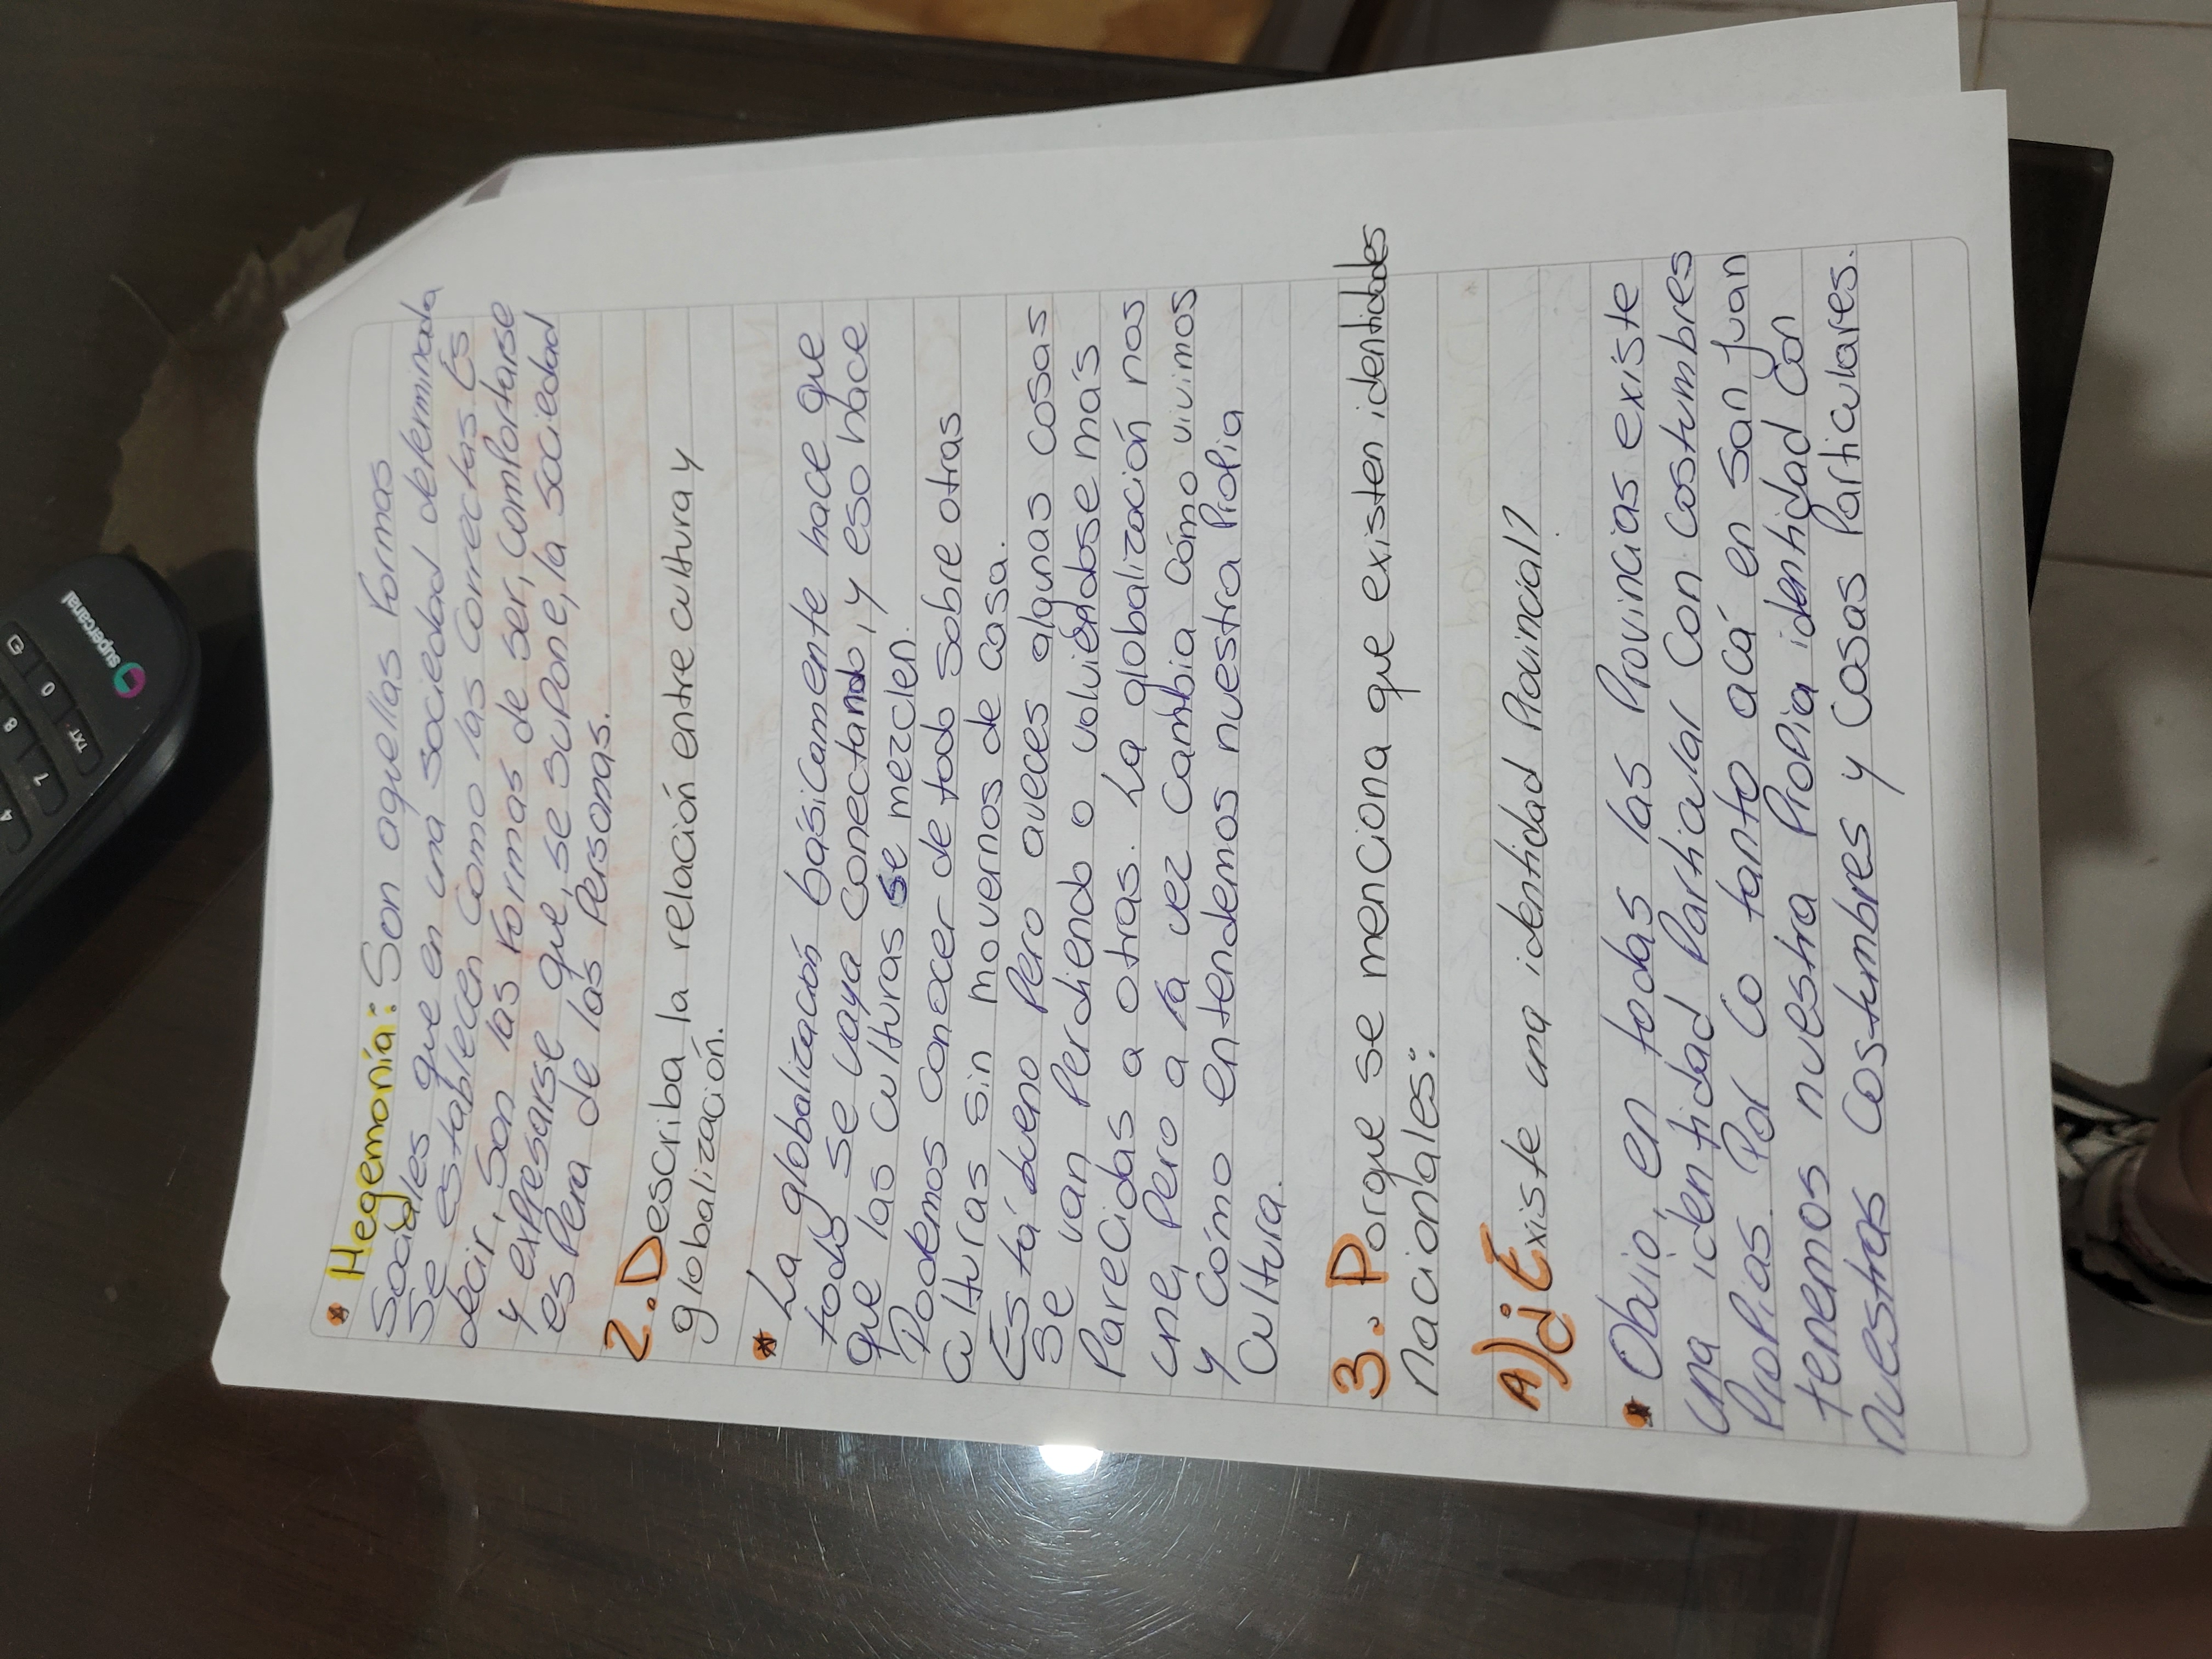 * Hegemonía: Son aquellas formas
sociales que en una sociedad determinada
se establecen como las correctas. Es
decir, son las formas de ser, comportarse
y expresarse que, se supone, la sociedad
espera de las personas.
2. Describa la relación entre cultura y
globalización.
* La globalización básicamente hace que
todo se vaya conectando, y eso hace
que las culturas se mezclen.
Podemos conocer de todo sobre otras
culturas sin movernos de casa.
Está bueno pero aveces algunas cosas
se van perdiendo o volviéndose más
parecidas a otras. La globalización nos
une, pero a la vez cambia cómo vivimos
y cómo entendemos nuestra propia
cultura.
3. Porque se menciona que existen identidades
nacionales:
A) ¿Existe una identidad provincial?
* Obvio, en todas las provincias existe
una identidad particular con costumbres
propias. Por lo tanto acá en san juan
tenemos nuestra propia identidad con
nuestras costumbres y cosas particulares.
supercanal
TXT
0
7
8
4